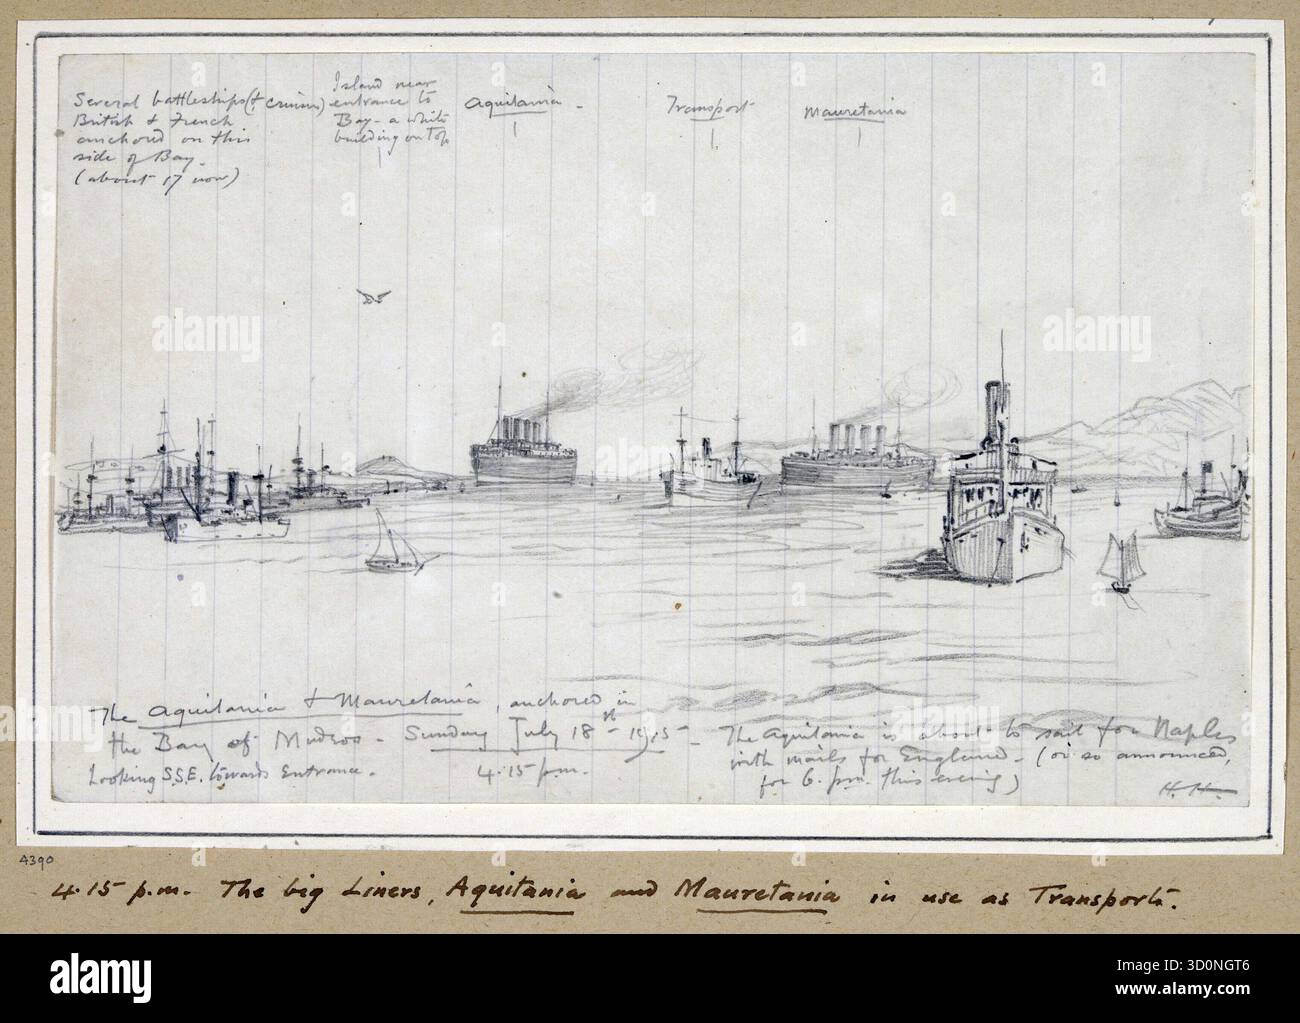 Several battleships (& cruisers)
British & French
anchored on this
side of Bay.
(about 17 now)
Island near
entrance to
Bay - a white
building on top
Aquitania -
Transport
Mauretania
The Aquitania & Mauretania, anchored in
the Bay of Mudros - Sunday July 18th 1915 -
Looking S.S.E. towards Entrance. 4.15 p.m.
The Aquitania is about to sail for Naples
with mails for England - (or so announced,
for 6. p.m. this evening)
H. H.
4390
4.15 p.m. The big Liners, Aquitania and Mauretania in use as Transports.
alamy
alamy
Image ID: 3D0NGT6
www.alamy.com